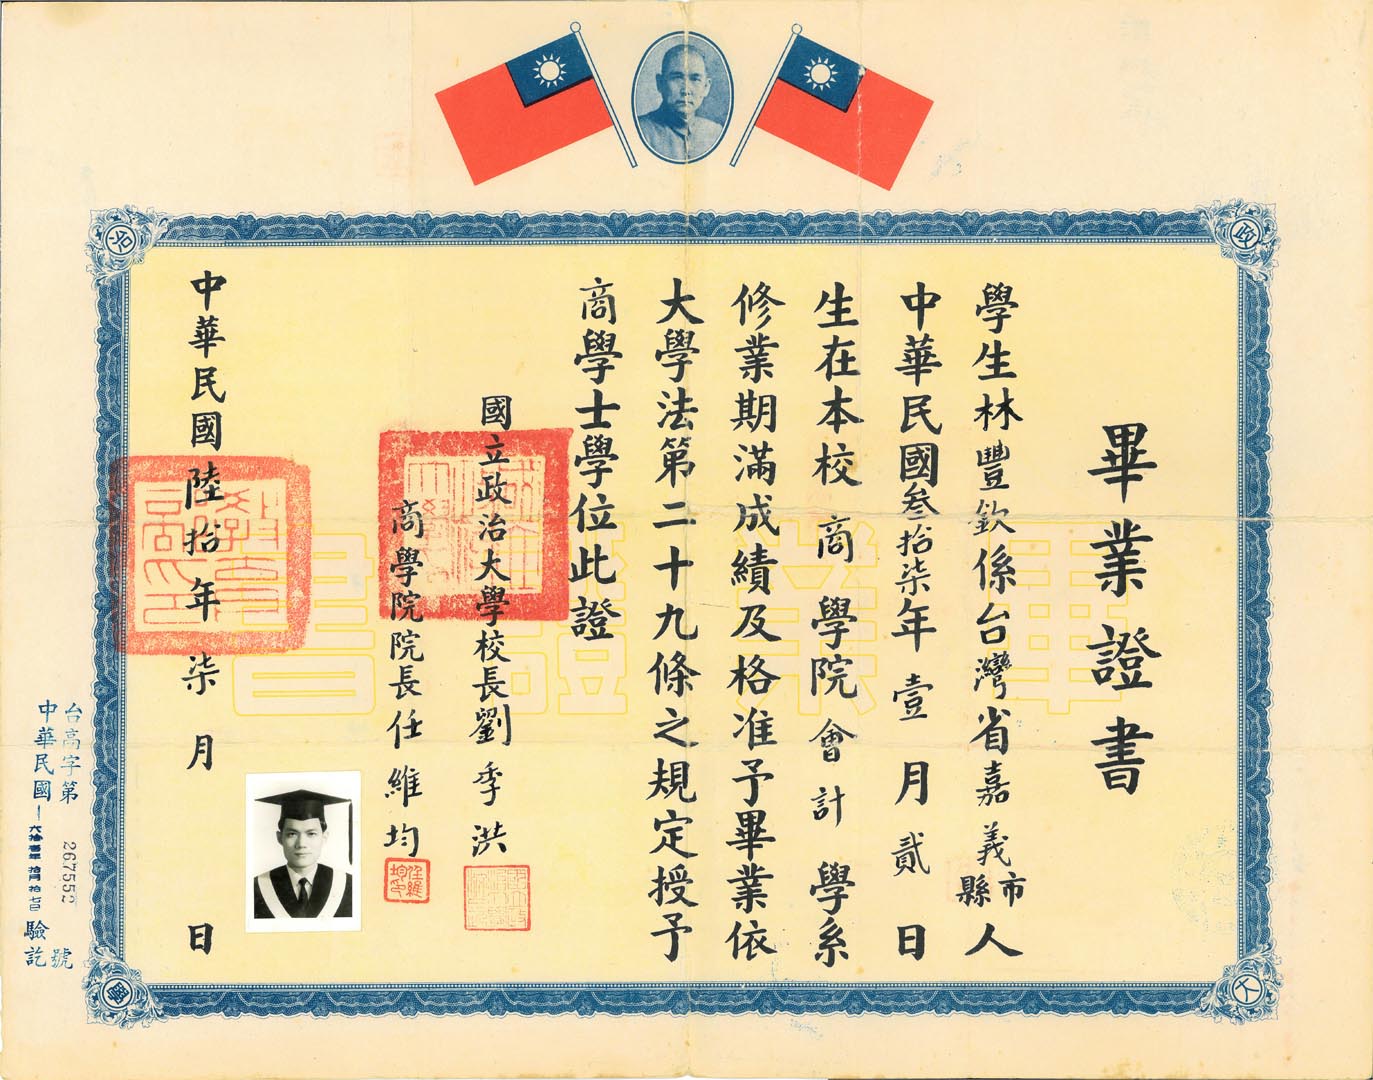 畢業證書
學生林豐欽係台灣省嘉義市縣人
中華民國叁拾柒年壹月貳日
生在本校商學院會計學系
修業期滿成績及格准予畢業依
大學法第二十九條之規定授予
商學士學位此證
國立政治大學校長劉季洪
商學院院長任維均
中華民國陸拾年柒月 日
台高字第267552號
中華民國 驗訖
畢業證書
政
治
大
學